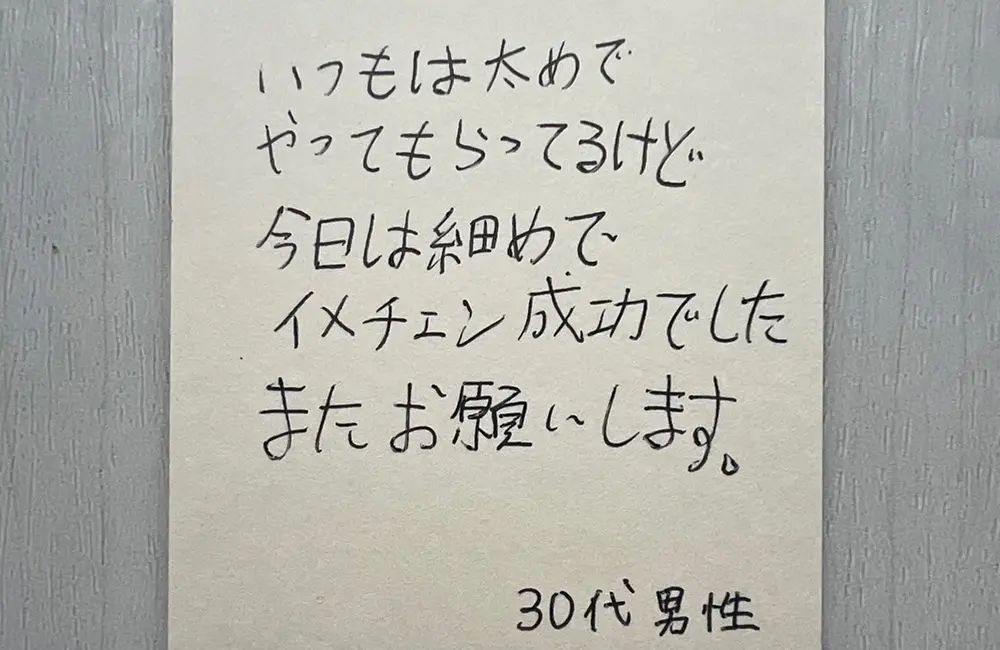 いつもは太めで
やってもらってるけど
今日は細めで
イメチェン成功でした
またお願いします。
30代男性